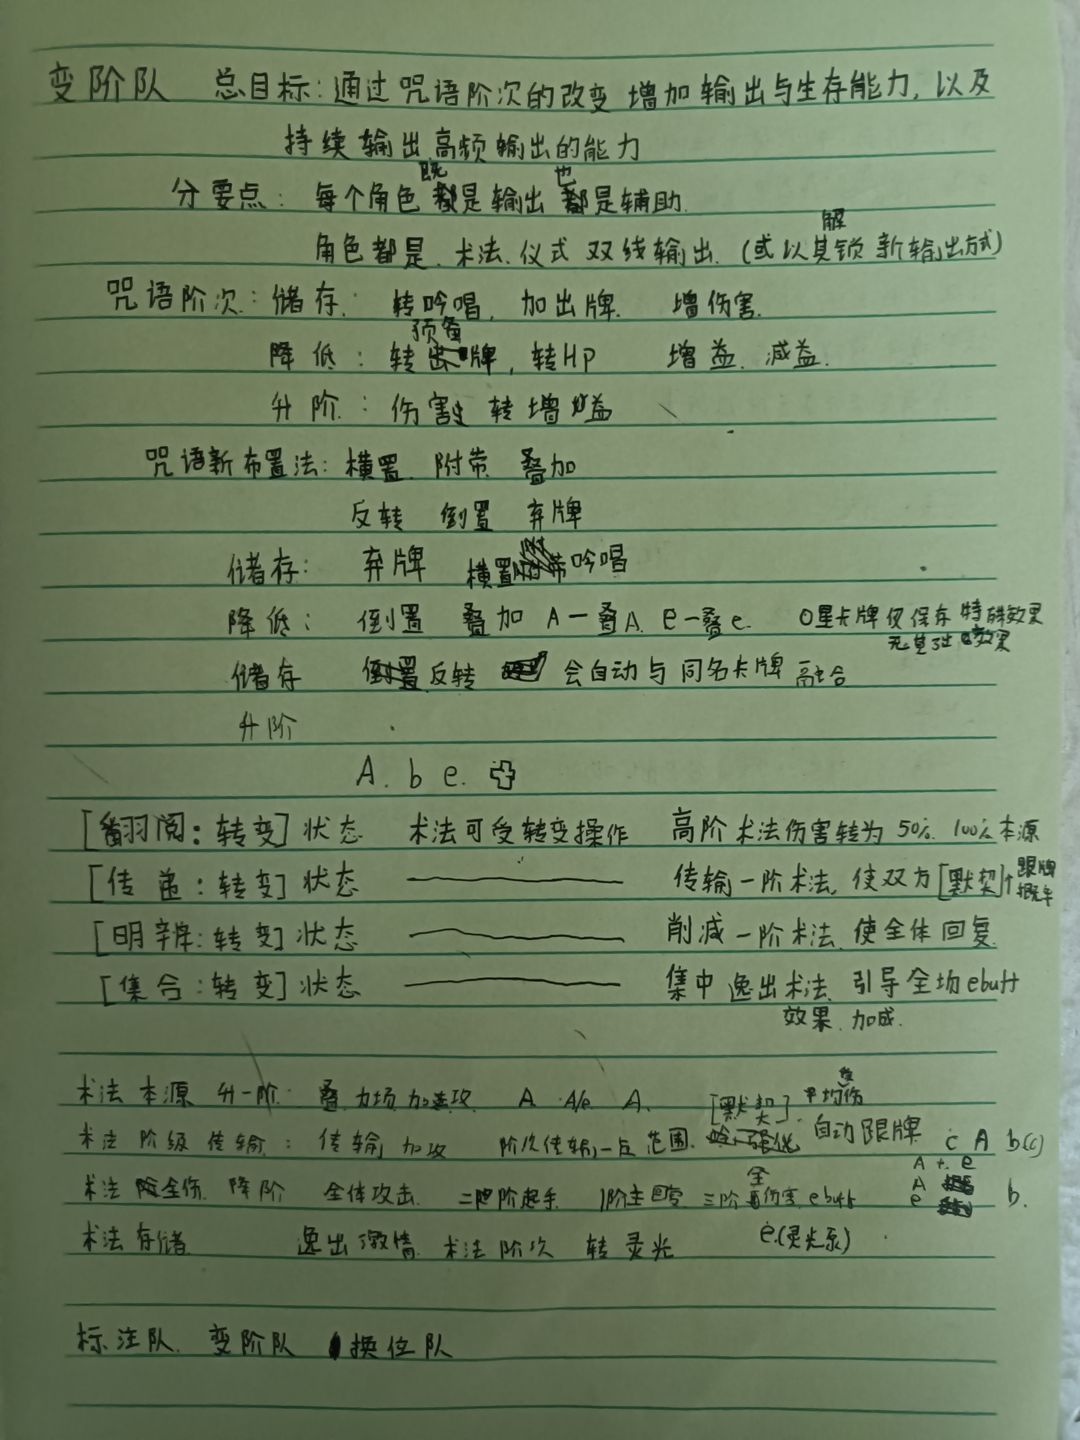 变阶队 总目标:通过咒语阶次的改变 增加输出与生存能力,以及
持续输出高频输出的能力
分要点: 每个角色既是输出也是辅助.
角色都是.术法.仪式 双线输出.(或以其解锁新输出方式)
咒语阶次: 储存: 转吟唱, 加出牌. 增伤害.
降低: 转预备牌, 转HP 增益. 减益.
升阶: 伤害 转增益
咒语新布置法: 横置. 附带. 叠加
反转 倒置 弃牌
储存: 弃牌 横置 吟唱
降低: 倒置 叠加 A一叠A. e一叠e. 0星卡牌仅保存特殊效果
无基础效果
储存 反转 会自动与同名卡牌融合
升阶
A. b e.
[翻阅:转变]状态 术法可受转变操作 高阶术法伤害转为50%. 100%本源
[传递:转变]状态 传输一阶术法,使双方[默契]↑跟牌概率
[明辨:转变]状态 削减一阶术法.使全体回复.
[集合:转变]状态 集中逸出术法.引导全场ebuff
效果.加成.
术法本源 升一阶: 叠力场加速攻. A A/e A. 平均伤
术法阶级传输: 传输加攻 阶次传输一与范围. [默契] 自动跟牌 c A b(c)
术法 全伤.降阶 全体攻击. 二阶起手. 1阶主回复 三阶全伤害.ebuff A + e A e b.
术法存储. 逸出激情.术法阶次 转灵光 e.(灵光系)
标注队. 变阶队 换位队